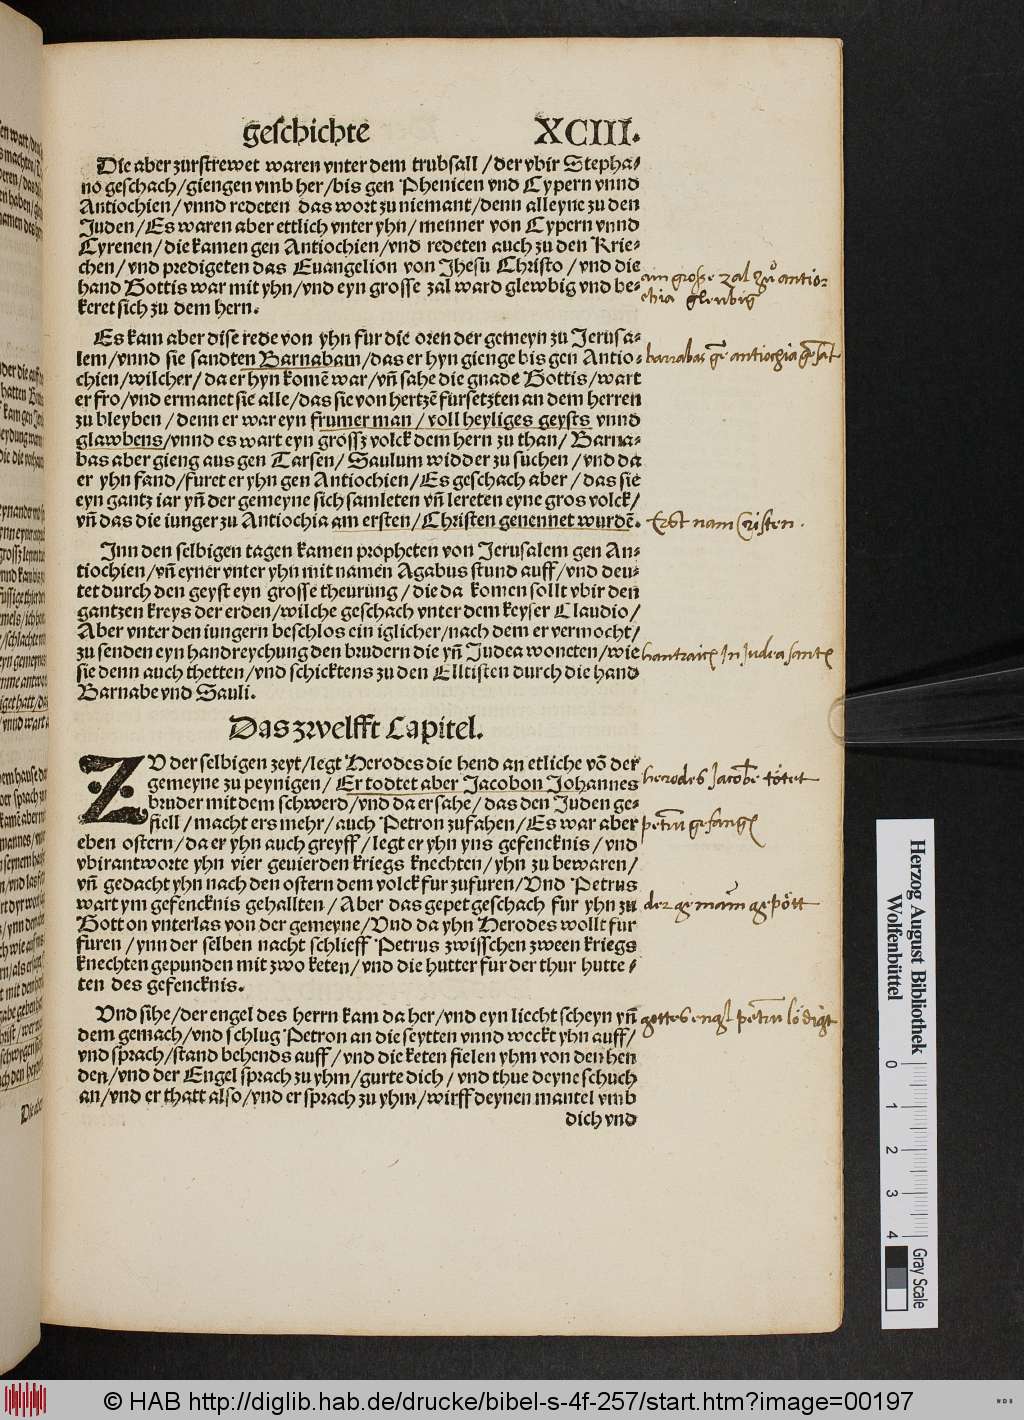 geschichte XCIII.
Die aber zurstrewet waren vnter dem trubsall / der vbir Stepha-
nō geschach / giengen vmb her / bis gen Phenicen vnd Cypern vnnd
Antiochien / vnnd redeten das wort zu niemant / denn alleyne zu den
Juden / Es waren aber ettlich vnter yhn / menner von Cypern vnnd
Cyrenen / die kamen gen Antiochien / vnd redeten auch zu den Krie-
chen / vnd predigeten das Euangelion von Jhesu Christo / vnd die
hand Gottis war mit yhn / vnd eyn grosse zal ward glewbig vnd be-
keret sich zu dem hern.
ain große zal zů antio-
chia gleubig
Es kam aber dise rede von yhn fur die oren der gemeyn zu Jerusa-
lem / vnnd sie sandten Barnabam / das er hyn gienge bis gen Antio-
chien / wilcher / da er hyn komē war / vn̄ sahe die gnade Gottis / wart
er fro / vnd ermanet sie alle / das sie von hertzē fursetzten an dem herren
zu bleyben / denn er war eyn frumer man / voll heyliges geysts vnnd
glawbens / vnnd es wart eyn grossz volck dem hern zu than / Barna-
bas aber gieng aus gen Tarsen / Saulum widder zu suchen / vnd da
er yhn fand / furet er yhn gen Antiochien / Es geschach aber / das sie
eyn gantz iar yn̄ der gemeyne sich samleten vn̄ lereten eyne gros volck /
vn̄ das die iunger zu Antiochia am ersten / Christen genennet wurdē.
barrabas gē antiochia gesāt
Erst nam Cristen.
Inn den selbigen tagen kamen propheten von Jerusalem gen An-
tiochien / vn̄ eyner vnter yhn mit namen Agabus stund auff / vnd deu-
tet durch den geyst eyn grosse theurung / die da komen sollt vbir den
gantzen kreys der erden / wilche geschach vnter dem keyser Claudio /
Aber vnter den iungern beschlos ein iglicher / nach dem er vermocht /
zu senden eyn handreychung den brudern die yn̄ Judea woncten / wie
sie denn auch thetten / vnd schicktens zu den Elltisten durch die hand
Barnabe vnd Sauli.
In Judea
Das zwelfft Capitel.
ZV der selbigen zeyt / legt Herodes die hend an etliche vō der
gemeyne zu peynigen / Er todtet aber Jacobon Johannes
bruder mit dem schwerd / vnd da er sahe / das den Juden ge-
fiell / macht ers mehr / auch Petron zufahen / Es war aber
eben ostern / da er yhn auch greyff / legt er yhn yns gefencknis / vnd
vbirantworte yhn vier geuierden kriegs knechten / yhn zu bewaren /
vn̄ gedacht yhn nach den ostern dem volck fur zufuren / Vnd Petrus
wart ym gefencknis gehallten / Aber das gepet geschach fur yhn zu
Gott on vnterlas von der gemeyne / Vnd da yhn Herodes wollt fur
furen / ynn der selben nacht schlieff Petrus zwisschen zween kriegs
knechten gepunden mit zwo keten / vnd die hutter fur der thur hutte-
ten des gefencknis.
herodes Jacobē tötet
petrū gefang
der gemain gepött
Vnd sihe / der engel des herrn kam da her / vnd eyn liecht scheyn yn̄
dem gemach / vnd schlug Petron an die seytten vnnd weckt yhn auff /
vnd sprach / stand behends auff / vnd die keten fielen yhm von den hen
den / vnd der Engel sprach zu yhm / gurte dich / vnd thue deyne schuch
an / vnd er thatt also / vnd er sprach zu yhm / wirff deynen mantel vmb
dich vnd
gottes engl petrū lödigt
Herzog August Bibliothek
Wolfenbüttel
0 1 2 3 4
Gray Scale
© HAB http://diglib.hab.de/drucke/bibel-s-4f-257/start.htm?image=00197